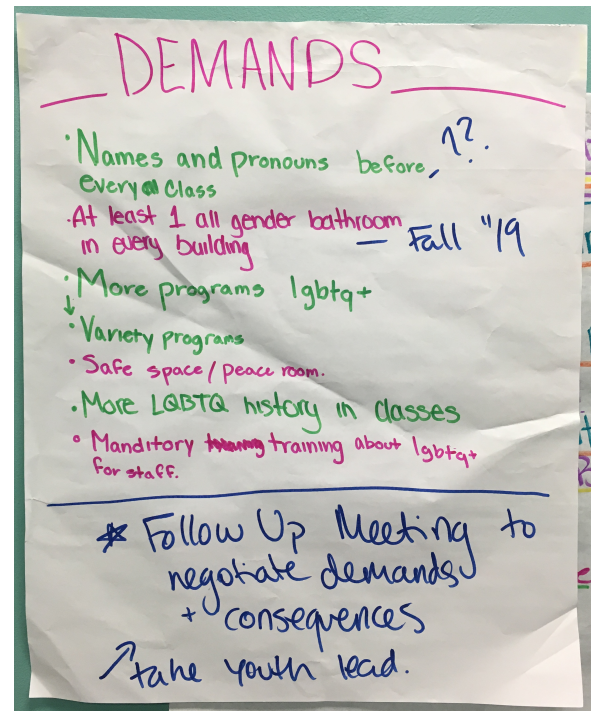 DEMANDS
• Names and pronouns before ??.
every Class
• At least 1 all gender bathroom
in every building — Fall "19
• More programs lgbtq+
• Variety programs
• Safe space/peace room.
• More LGBTQ history in classes
• Manditory training about lgbtq+
for staff.
* Follow Up Meeting to
negotiate demands
+ consequences
take youth lead.